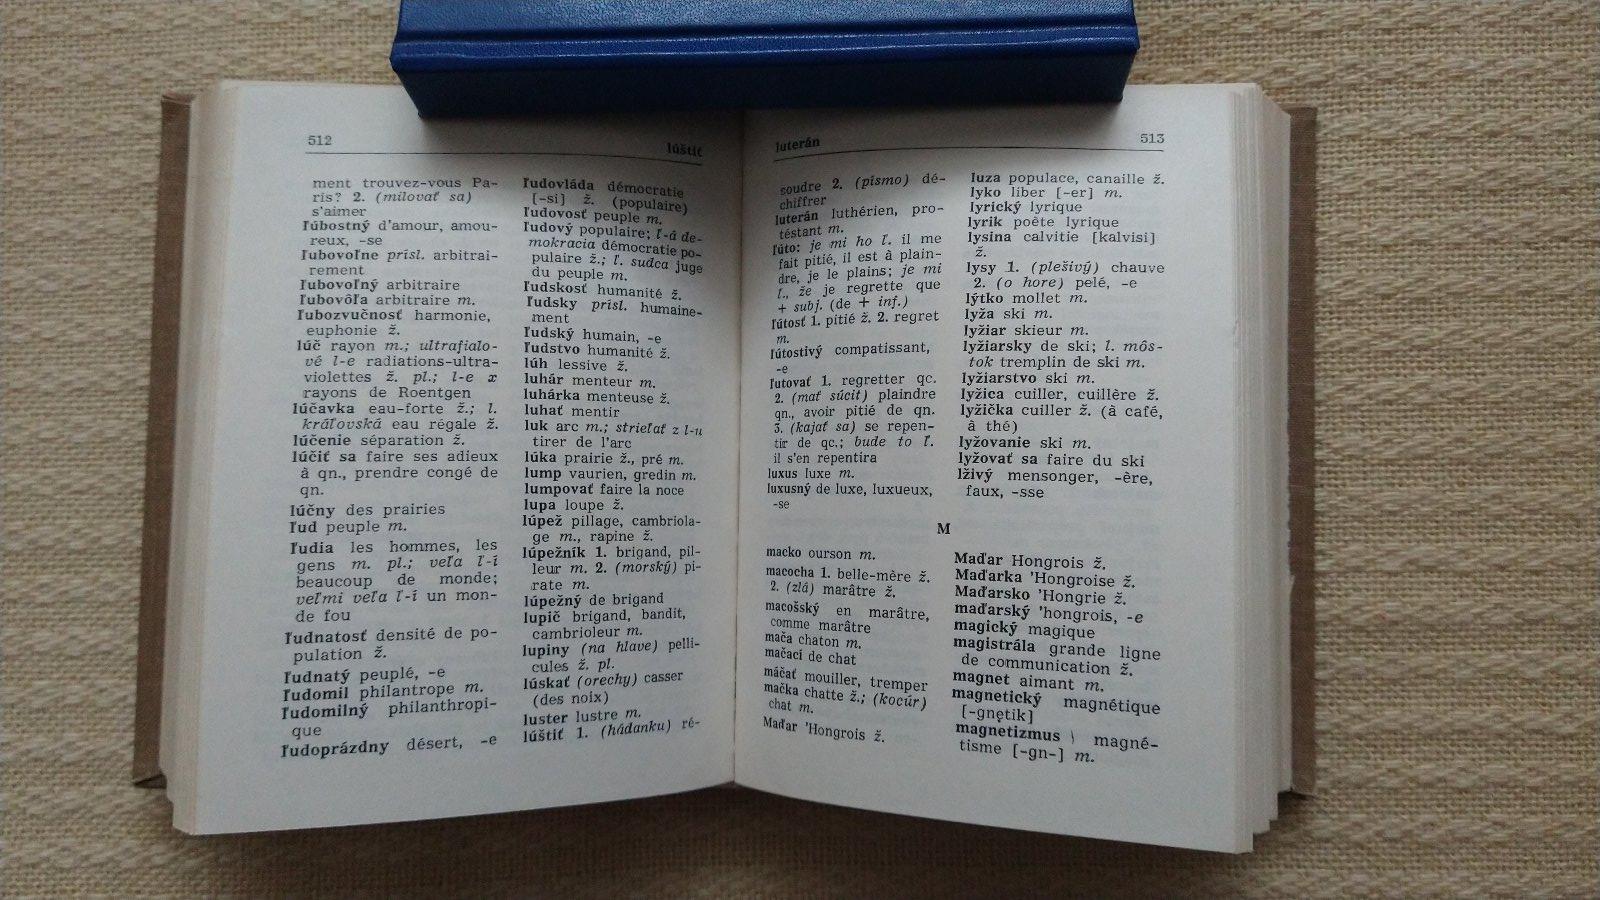 512
lúštiť
ment trouvez-vous Pa-
ris? 2. (milovať sa)
s'aimer
ľúbostný d'amour, amou-
reux, -se
ľubovoľne prísl. arbitrai-
rement
ľubovoľný arbitraire
ľubovôľa arbitraire m.
ľubozvučnosť harmonie,
euphonie ž.
lúč rayon m.; ultrafialo-
vé l-e radiations-ultra-
violettes ž. pl.; l-e x
rayons de Roentgen
lúčavka eau-forte ž.; l.
kráľovská eau régale ž.
lúčenie séparation ž.
lúčiť sa faire ses adieux
à qn., prendre congé de
qn.
lúčny des prairies
ľud peuple m.
ľudia les hommes, les
gens m. pl.; veľa ľ-í
beaucoup de monde;
veľmi veľa ľ-í un mon-
de fou
ľudnatosť densité de po-
pulation ž.
ľudnatý peuplé, -e
ľudomil philantrope m.
ľudomilný philanthropi-
que
ľudoprázdny désert, -e
ľudovláda démocratie
[-si] ž. (populaire)
ľudovosť peuple m.
ľudový populaire; ľ-á de-
mokracia démocratie po-
pulaire ž.; ľ. sudca juge
du peuple m.
ľudskosť humanité ž.
ľudsky prísl. humaine-
ment
ľudský humain, -e
ľudstvo humanité ž.
lúh lessive ž.
luhár menteur m.
luhárka menteuse ž.
luhať mentir
luk arc m.; strieľať z l-u
tirer de l'arc
lúka prairie ž., pré m.
lump vaurien, gredin m.
lumpovať faire la noce
lupa loupe ž.
lúpež pillage, cambriola-
ge m., rapine ž.
lúpežník 1. brigand, pil-
leur m. 2. (morský) pi-
rate m.
lúpežný de brigand
lupič brigand, bandit,
cambrioleur m.
lupiny (na hlave) pelli-
cules ž. pl.
lúskať (orechy) casser
(des noix)
luster lustre m.
lúštiť 1. (hádanku) ré-
luterán
513
soudre 2. (písmo) dé-
chiffrer
luterán luthérien, pro-
testant m.
ľúto: je mi ho ľ. il me
fait pitié, il est à plain-
dre, je le plains; je mi
ľ., že je regrette que
+ subj. (de + inf.)
ľútosť 1. pitié ž. 2. regret
m.
ľútostivý compatissant,
-e
ľutovať 1. regretter qc.
2. (mať súcit) plaindre
qn., avoir pitié de qn.
3. (kajať sa) se repen-
tir de qc.; bude to ľ.
il s'en repentira
luxus luxe m.
luxusný de luxe, luxueux,
-se
luza populace, canaille ž.
lyko liber [-er] m.
lyrický lyrique
lyrik poête lyrique
lysina calvitie [kalvisi]
ž.
lysy 1. (plešivý) chauve
2. (o hore) pelé, -e
lýtko mollet m.
lyža ski m.
lyžiar skieur m.
lyžiarsky de ski; l. môs-
tok tremplin de ski m.
lyžiarstvo ski m.
lyžica cuiller, cuillère ž.
lyžička cuiller ž. (à café,
à thé)
lyžovanie ski m.
lyžovať sa faire du ski
lživý mensonger, -ère,
faux, -sse
M
macko ourson m.
macocha 1. belle-mère ž.
2. (zlá) marâtre ž.
macošský en marâtre,
comme marâtre
mača chaton m.
mačací de chat
máčať mouiller, tremper
mačka chatte ž.; (kocúr)
chat m.
Maďar 'Hongrois ž.
Maďar Hongrois ž.
Maďarka 'Hongroise ž.
Maďarsko 'Hongrie ž.
maďarský 'hongrois, -e
magický magique
magistrála grande ligne
de communication ž.
magnet aimant m.
magnetický magnétique
[-gnętik]
magnetizmus magné-
tisme [-gn-] m.